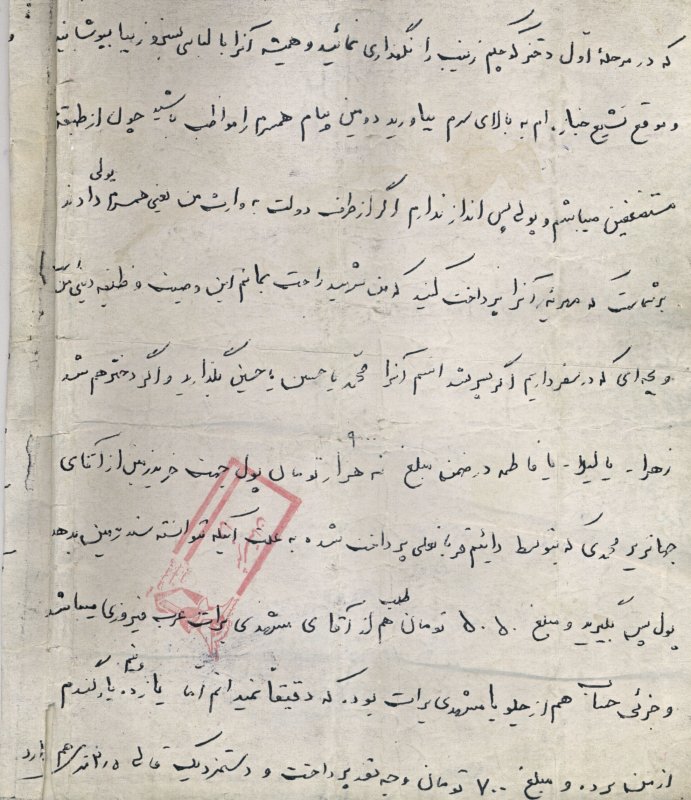 که در مرحلهٔ اول دخترکوچکم زینب را نگهداری نمائید و همیشه آنرا با لباس تمیز و زیبا بپوشانید
و موقع تشیع جنازه‌ام به بالای سرم بیاورید دومین پیام همسرم را مواظب باشید چون از طبقه
مستضعفین میباشم و پولی پس انداز ندارم اگر از طرف دولت به وارث من یعنی همسرم پولی دادند
برشماست که مهریه آنرا پرداخت کنید که من شاید راحت بمانم این وصیت و وظیفه دینی من
و بچه‌ای که در سفر داریم اگر پسر شد اسم آنرا محمد یا حسن یا حسین بگذارید و اگر دختر هم شد
زهرا - یا لیلا - یا فاطمه در ضمن مبلغ نه هزار ۹۰۰۰ تومان پول جهت خرید زمین از آقای
محمدی که بتوسط دائیم قربانعلی پرداخت شده به علت اینکه نتوانسته سند زمین بدهد
پول پس بگیرید و مبلغ ۵۰۵۰ تومان طلب هم از آقای مشهدی برات عرب فیروزی میباشد
و جزئی حساب هم از جلو با مشهدی برات بوده که دقیقاً نمیدانم اما یازده بار گندم
از من برده و مبلغ ۷۰۰ تومان وجه نقد پرداخت و دستمزد یک قالی هم دارد